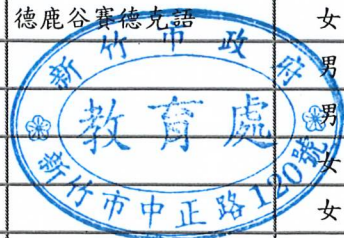 德鹿谷賽德克語 女
男
男
女
女
新竹市政府
教育處
新竹市中正路120號